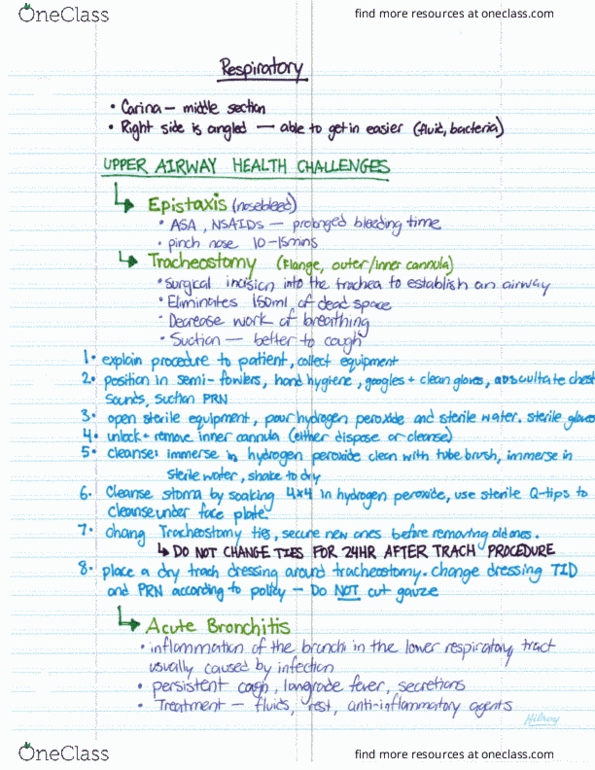 OneClass
find more resources at oneclass.com
Respiratory
• Carina — middle section
• Right side is angled — able to get in easier (fluid, bacteria)
UPPER AIRWAY HEALTH CHALLENGES
↳ Epistaxis (nosebleed)
• ASA, NSAIDs — prolonged bleeding time
• pinch nose 10-15mins
↳ Tracheostomy (flange, outer/inner cannula)
• Surgical incision into the trachea to establish an airway
• Eliminates 150ml of dead space
• Decrease work of breathing
• Suction — better to cough
1• explain procedure to patient, collect equipment
2• position in semi-fowlers, hand hygiene, googles + clean gloves, auscultate chest
sounds, suction PRN
3• open sterile equipment, pour hydrogen peroxide and sterile water. sterile gloves
4• unlock + remove inner cannula (either dispose or cleanse)
5• cleanse: immerse in hydrogen peroxide clean with tube brush, immerse in
sterile water, shake to dry
6. Cleanse stoma by soaking 4x4 in hydrogen peroxide, use sterile Q-tips to
cleanse under face plate
7• chang Tracheostomy ties, secure new ones before removing old ones.
↳ DO NOT CHANGE TIES FOR 24HR AFTER TRACH PROCEDURE
8• place a dry trach dressing around tracheostomy. Change dressing TID
and PRN according to policy — Do NOT cut gauze
↳ Acute Bronchitis
• inflammation of the bronchi in the lower respiratory tract
usually caused by infection
• persistent cough, longrade fever, secretions
• Treatment — fluids, rest, anti-inflammatory agents
Hilroy
OneClass
find more resources at oneclass.com